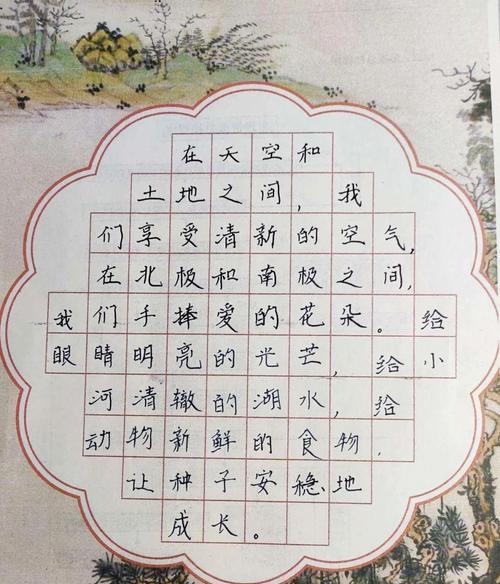 在天空和
土地之间,我
们享受清新的空气,
在北极和南极之间,
我们手捧爱的花朵。给
眼睛明亮的光芒,给小
河清辙的湖水,给
动物新鲜的食物,
让种子安稳地
成长。